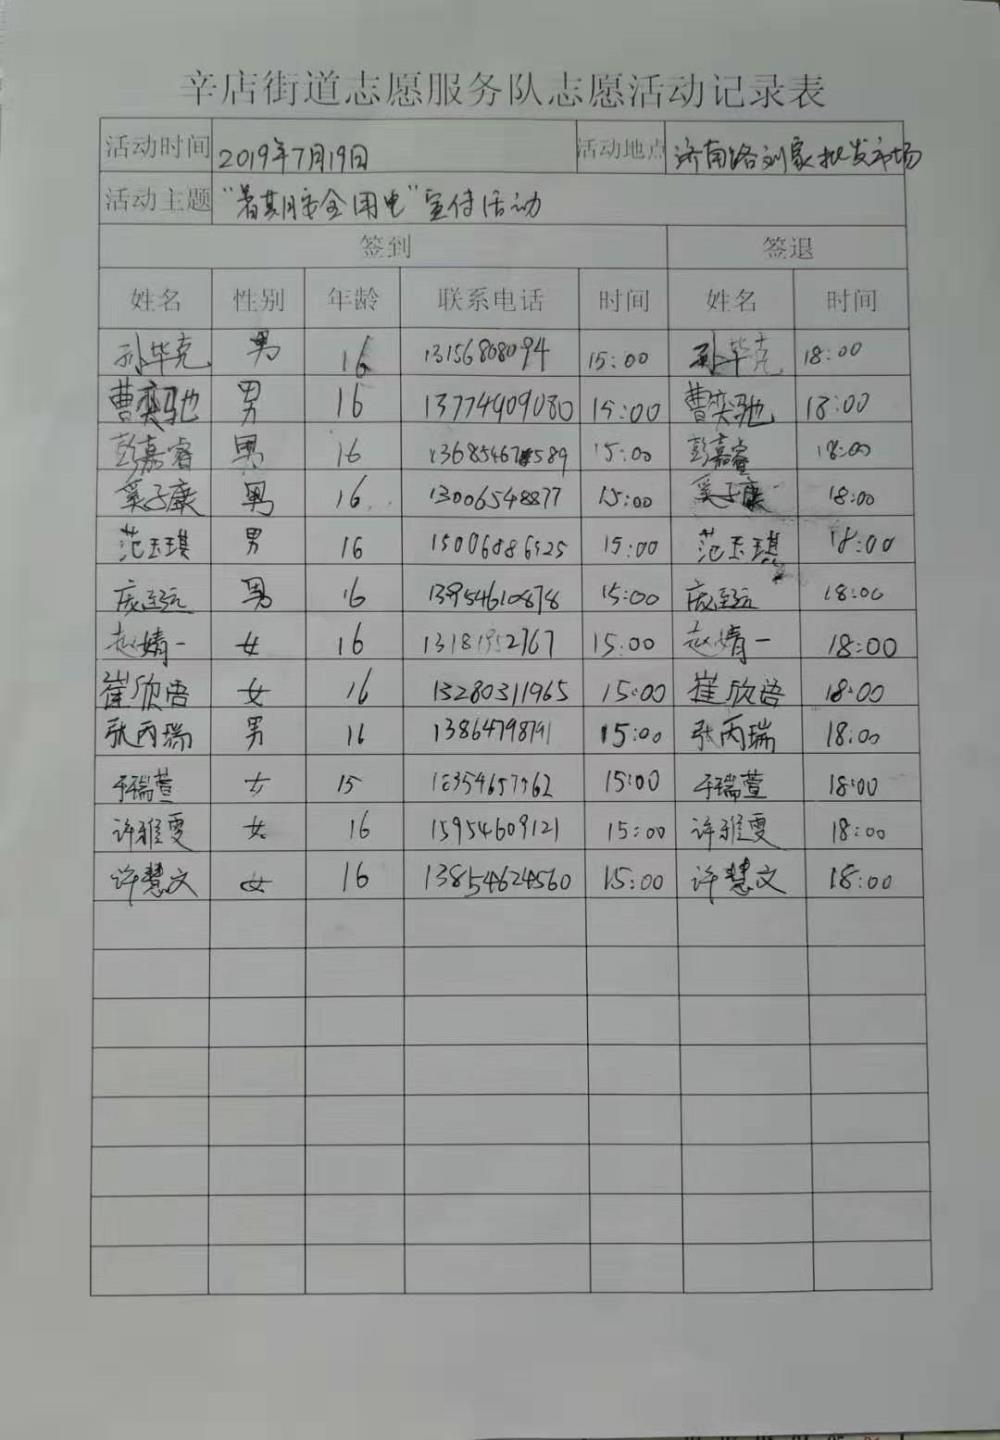 辛店街道志愿服务队志愿活动记录表
活动时间 2019年7月19日 活动地点 济南路刘家批发市场
活动主题 "暑期安全用电"宣传活动
签到 签退
姓名 性别 年龄 联系电话 时间 姓名 时间
孙毕克 男 16 13156808094 15:00 孙毕克 18:00
曹奕驰 男 16 13774909080 15:00 曹奕驰 18:00
彭嘉睿 男 16 15:00 彭嘉睿 18:00
奚子康 男 16 13006548877 15:00 奚子康 18:00
范玉琪 男 16 15006886525 15:00 范玉琪 18:00
庞至远 男 16 13954610878 15:00 庞至远 18:00
赵婧一 女 16 13181952767 15:00 赵婧一 18:00
崔欣语 女 16 13280311965 15:00 崔欣语 18:00
张丙瑞 男 16 13864798791 15:00 张丙瑞 18:00
于瑞萱 女 15 15:00 于瑞萱 18:00
许雅雯 女 16 15954609121 15:00 许雅雯 18:00
许慧文 女 16 13854624560 15:00 许慧文 18:00